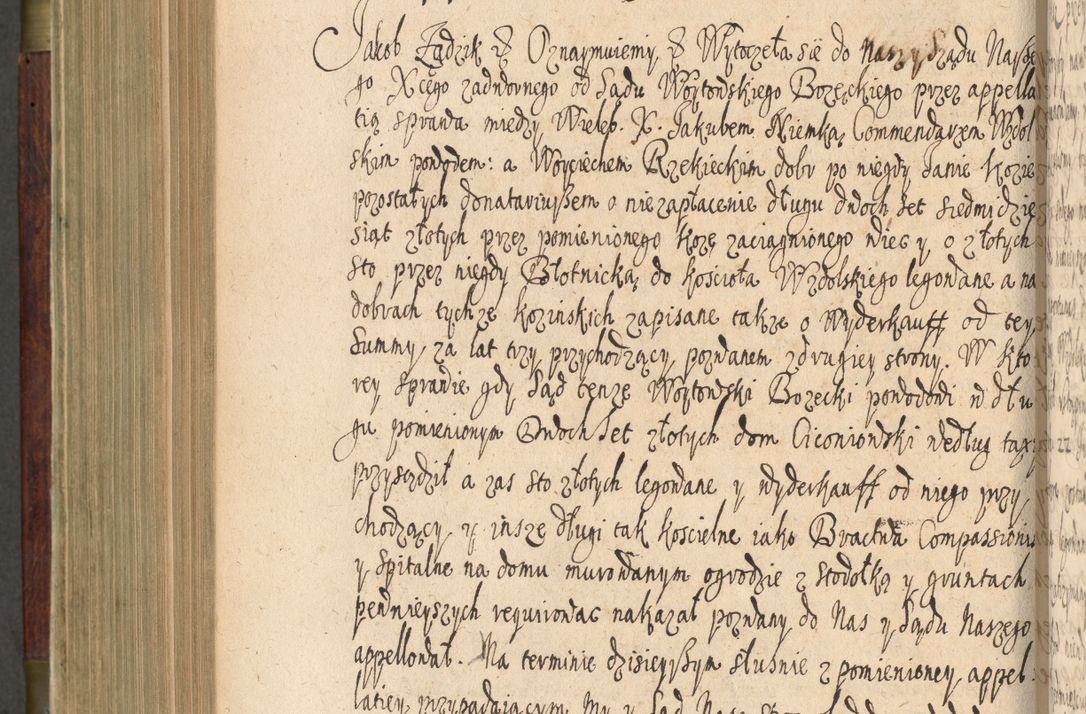 Jakob Zadzik & Oznaymuiemy, & Wytoczeła się do Naszy Sądu Nasze
go Xcęgo zadwornego od Sądu Woytowskiego Bozęckiego przez appella
tią sprawa między Wieleb. X. Jakubem Niemką Commendarzem Wzdol
skim powodem: a Woyciechem Rzekieckim dobr po niegdy Janie Kozie
pozostałych donatariuszem o niezapłacenie długu dwoch set siedmidzie
siąt złotych przez pomienionego Kozę zaciągnionego wiec y o złotych
sto przez niegdy Błotnicką do kościoła Wzdolskiego legowane a na
dobrach tychze kozinskich zapisane takze o Wyderkauff od tey
Summy, za lat trzy przychodzący, pozwanem z drugiey strony. W kto
rey sprawie gdy Sąd tenze Woytowski Bozecki powodowi w dłu
gu pomienionym Dwoch set złotych dom Ciconiowski według taxy
przysądził a zas sto złotych legowane y wyderkauff od niego przy
chodzący, y insze długi tak koscielne iako Bractwa Compassionis
y spitalne na domu murowanym ogrodzie z stodołką y gruntach
pewnieyszych requirowac nakazał pozwany do Nas y Sądu Naszego
appellował. Na terminie dzisieyszym słusnie z pomienioney appel
latiey przypadaiącym My y Sąd Nasz